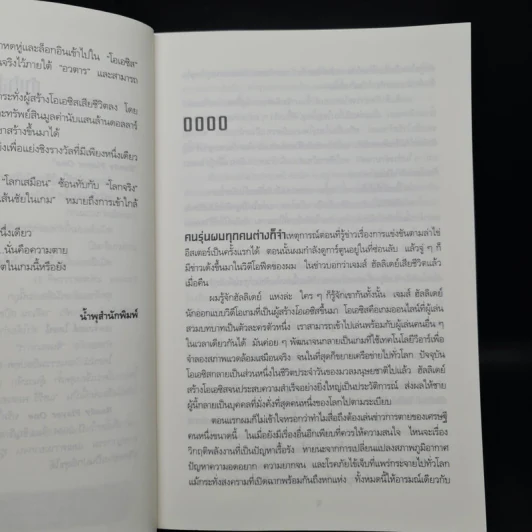 าหตหู่และล็อกอินเข้าไปใน "โอเอซิส"
นจริงไว้ภายใต้ "อวตาร" และสามารถ
ระทั่งผู้สร้างโอเอซิสเสียชีวิตลง โดย
ะทรัพย์สินมูลค่านับแสนล้านดอลลาร์
าสร้างขึ้นมาได้
งเพื่อแย่งชิงรางวัลที่มีเพียงหนึ่งเดียว
"โลกเสมือน" ซ้อนทับกับ "โลกจริง"
ส้นชัยในเกม" หมายถึงการเข้าใกล้
นึ่งเดียว
..นั่นคือความตาย
ตในเกมนี้หรือยัง
น้ำพุสำนักพิมพ์
0000
คนรุ่นผมทุกคนต่างก็จำเหตุการณ์ตอนที่รู้ข่าวเรื่องการแข่งขันตามล่าไข่
อีสเตอร์เป็นครั้งแรกได้ ตอนนั้นผมกำลังดูการ์ตูนอยู่ในที่ซ่อนลับ แล้วจู่ ๆ ก็
มีข่าวเด้งขึ้นมาในวิดีโอฟีดของผม ในข่าวบอกว่าเจมส์ ฮัลลิเดย์เสียชีวิตแล้ว
เมื่อคืน
ผมรู้จักฮัลลิเดย์ แหงล่ะ ใคร ๆ ก็รู้จักเขากันทั้งนั้น เจมส์ ฮัลลิเดย์
นักออกแบบวิดีโอเกมที่เป็นผู้สร้างโอเอซิสขึ้นมา โอเอซิสคือเกมออนไลน์ที่ผู้เล่น
สวมบทบาทเป็นตัวละครตัวหนึ่ง เราสามารถเข้าไปเล่นพร้อมกับผู้เล่นคนอื่น ๆ
ในเวลาเดียวกันได้ มันค่อย ๆ พัฒนาจนกลายเป็นเกมที่ใช้เทคโนโลยีวีอาร์เพื่อ
จำลองสภาพแวดล้อมเสมือนจริง จนในที่สุดก็ขยายเครือข่ายไปทั่วโลก ปัจจุบัน
โอเอซิสกลายเป็นส่วนหนึ่งในชีวิตประจำวันของมวลมนุษยชาติไปแล้ว ฮัลลิเดย์
สร้างโอเอซิสจนประสบความสำเร็จอย่างยิ่งใหญ่เป็นประวัติการณ์ ส่งผลให้ชาย
ผู้นี้กลายเป็นบุคคลที่มั่งคั่งที่สุดคนหนึ่งของโลกไปตามระเบียบ
ตอนแรกผมก็ไม่เข้าใจหรอกว่าทำไมสื่อถึงต้องเล่นข่าวการตายของเศรษฐี
คนหนึ่งขนาดนี้ ในเมื่อยังมีเรื่องอื่นอีกเพียบที่ควรให้ความสนใจ ไหนจะเรื่อง
วิกฤติพลังงานที่เป็นปัญหาเรื้อรัง หายนะจากการเปลี่ยนแปลงสภาพภูมิอากาศ
ปัญหาความอดอยาก ความยากจน และโรคภัยไข้เจ็บที่แพร่กระจายไปทั่วโลก
แม้กระทั่งสงครามที่เปิดฉากพร้อมกันถึงหกแห่ง ทั้งหมดนี้ให้อารมณ์เดียวกับ